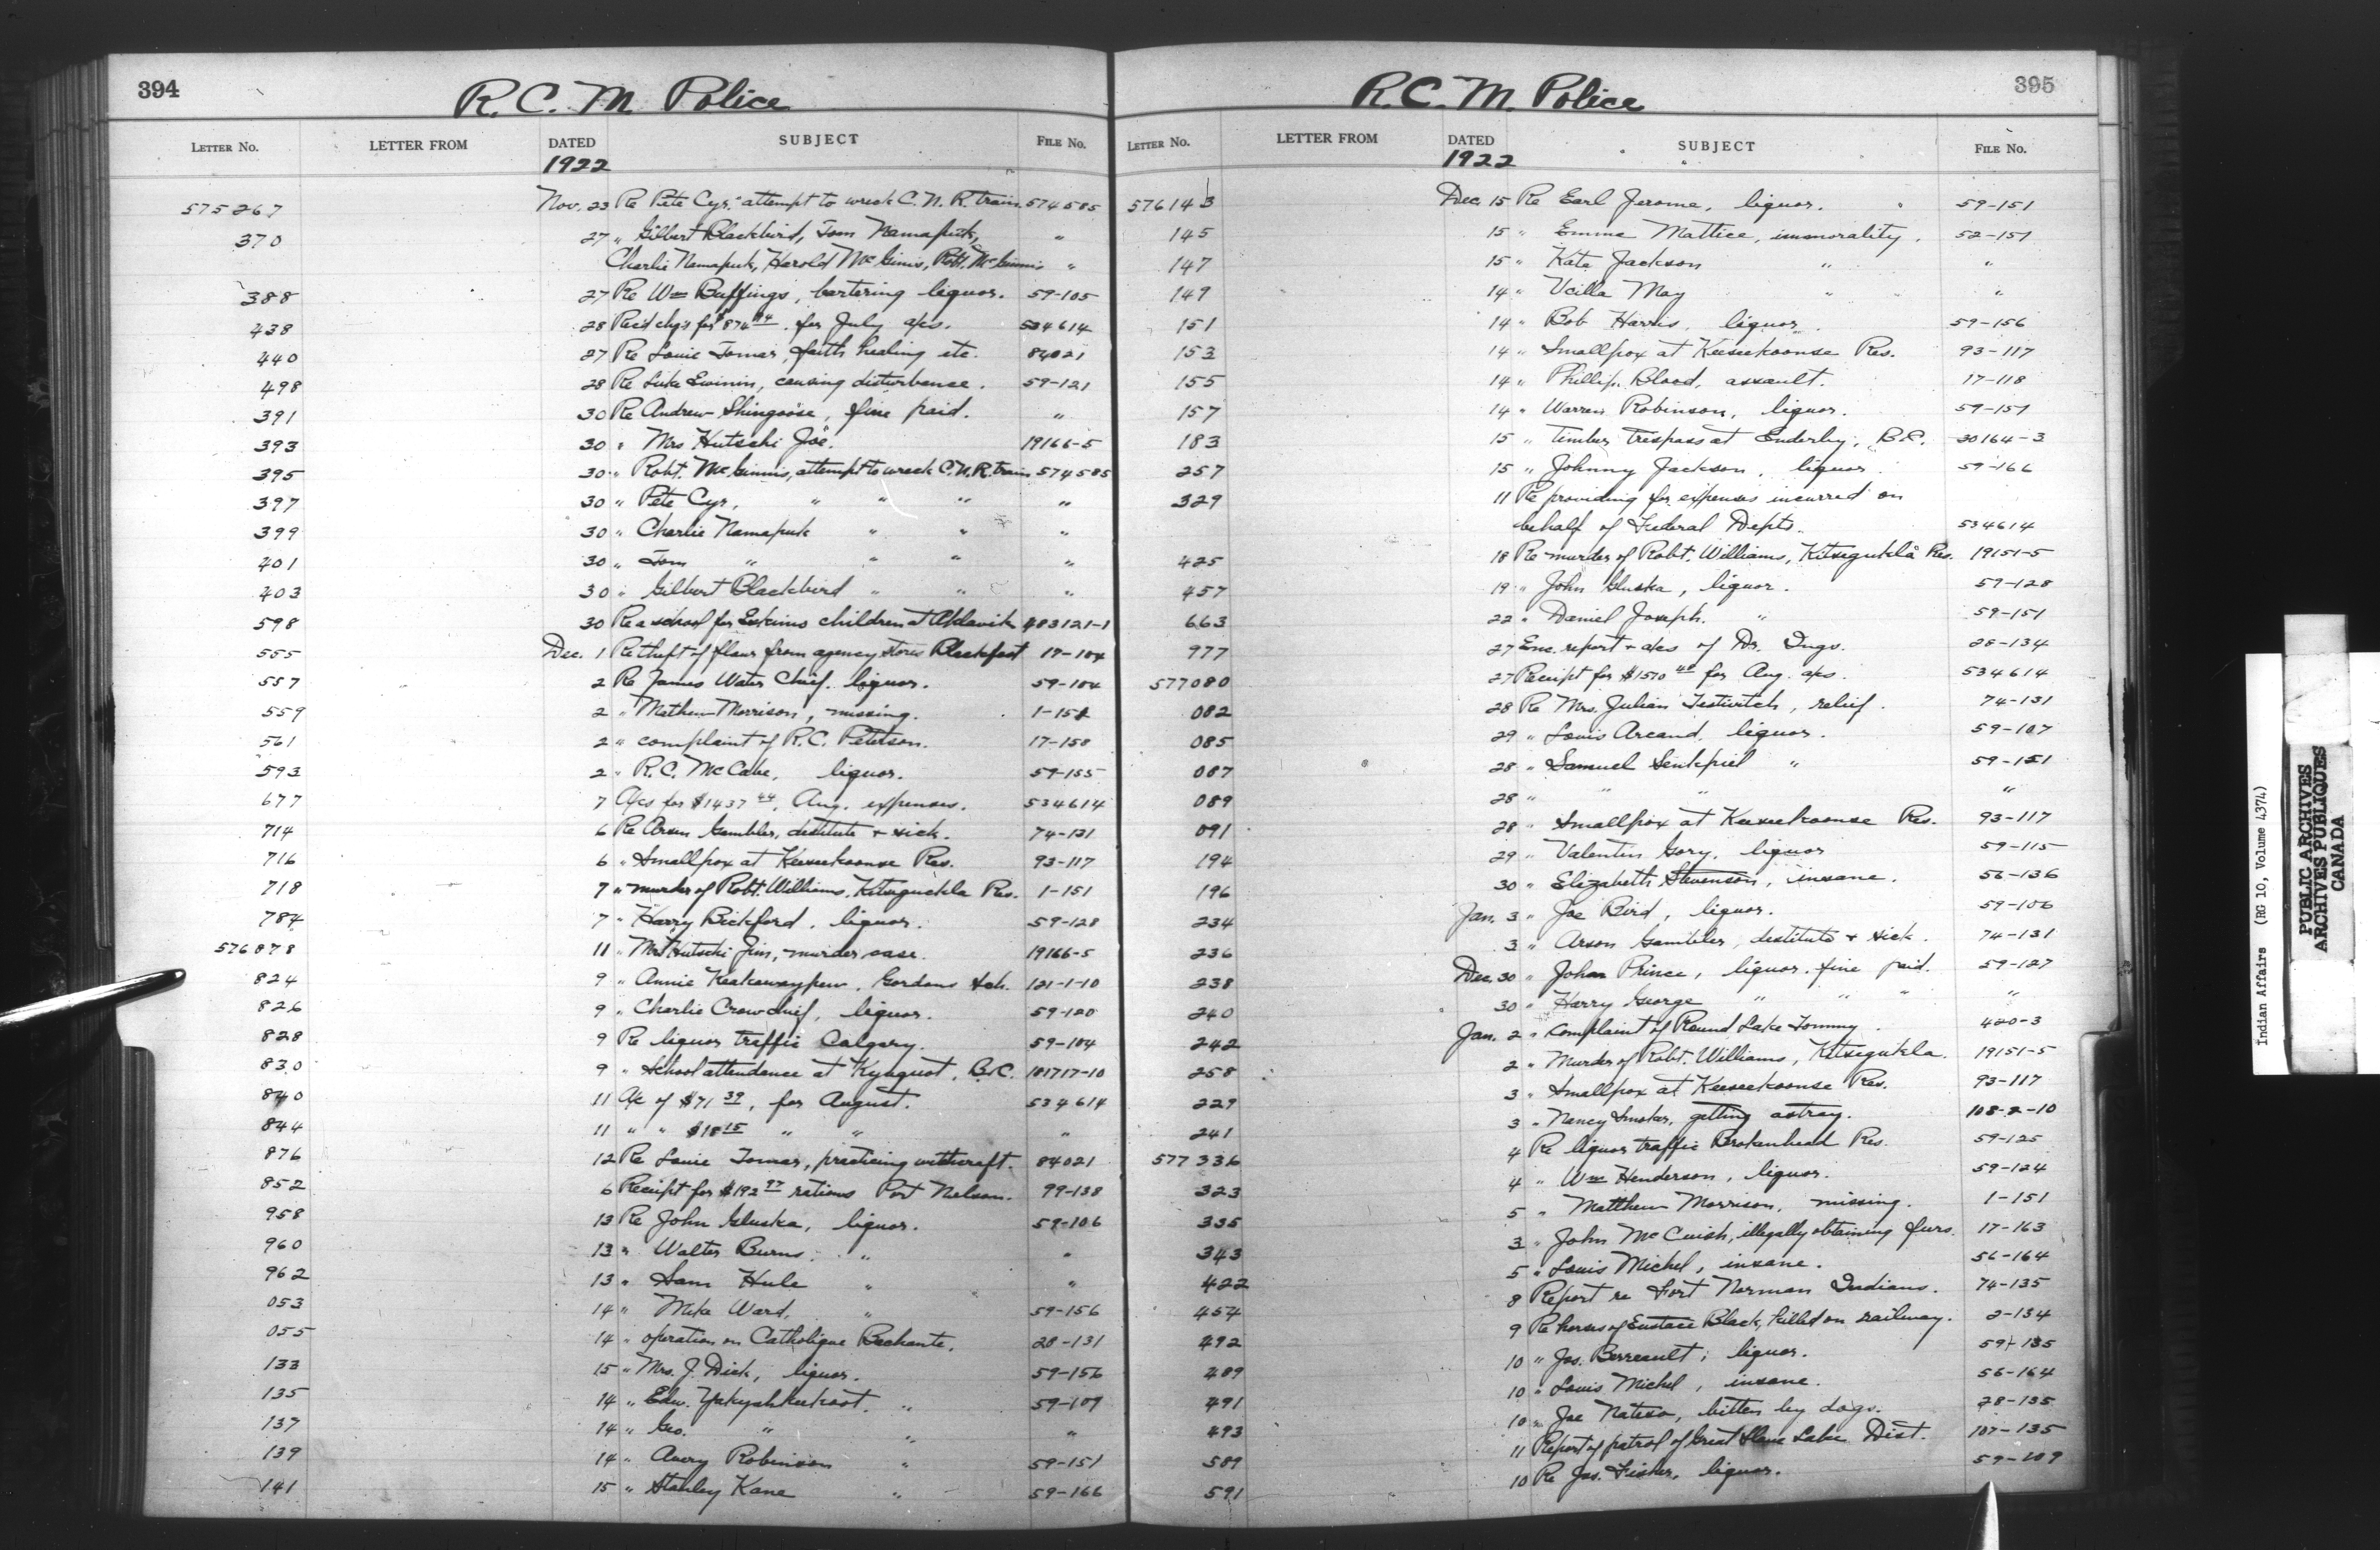 394
R. C. M. Police
LETTER NO. LETTER FROM DATED SUBJECT FILE NO.
1922
575267 Nov. 23 Re Pete Cyr, attempt to wreck C. N. R. train. 574585
370 27 " Gilbert Blackbird, Tom Namapuk, "
Charlie Namapuk, Harold McGinis, Robt. McGinnis "
388 27 Re Wm Buffings, bartering liquor. 59-105
438 28 Rec'd chq's for $874.94 for July a/cs. 534614
440 27 Re Louie Tomar, faith healing etc. 84021
498 28 Re Luke Ewinin, causing disturbance. 59-121
391 30 Re Andrew Shingoose, fine paid. "
393 30 " Mrs Hutschi Joe. 19166-5
395 30 " Robt. McGinnis, attempt to wreck C. N. R. train 574585
397 30 " Pete Cyr, " " " "
399 30 " Charlie Namapuk " " "
401 30 " Tom " " " "
403 30 " Gilbert Blackbird " " "
598 30 Re a school for Eskimo children at Aklavik 483121-1
555 Dec. 1 Re theft of flour from agency stores Blackfoot 17-104
557 2 Re James Water Chief, liquor. 59-104
559 2 " Mathew Morrison, missing. 1-151
561 2 " complaint of R.C. Peterson. 17-158
593 2 " R.C. McCabe, liquor. 59-155
677 7 A/cs for $1437.44, Aug. expenses. 534614
714 6 Re Arsen Gambler, destitute & sick. 74-131
716 6 " Smallpox at Keeseekoonse Res. 93-117
718 7 " murder of Robt. Williams, Kitseguckla Res. 1-151
784 7 " Harry Bickford, liquor. 59-128
576878 11 " Mrs Hutschi Jim, murder case. 19166-5
824 9 " Annie Keakewaypew, Gordons Sch. 121-1-10
826 9 " Charlie Crowchief, liquor. 59-120
828 9 Re liquor traffic Calgary. 59-104
830 9 " School attendance at Kyuquot, B.C. 181717-10
840 11 A/c of $71.39, for August. 534614
844 11 " " $18.15 " " "
876 12 Re Louie Tomar, practicing witchcraft. 84021
852 6 Receipt for $192.97 rations Port Nelson. 99-138
958 13 Re John Gluska, liquor. 59-106
960 13 " Walter Burns " "
962 13 " Sam Hule " "
053 14 " Mike Ward, " 59-156
055 14 " operation on Catholique Bechante. 28-131
133 15 " Mrs. J. Dick, liquor. 59-156
135 14 " Edw. Yakyshkeekoot " 59-109
137 14 " Geo. " " "
139 14 " Avery Robinson " 59-151
141 15 " Stanley Kane " 59-166
395
R. C. M. Police
LETTER NO. LETTER FROM DATED SUBJECT FILE NO.
1922
576143 Dec. 15 Re Earl Jerome, liquor. 59-151
145 15 " Emma Mattice, immorality. 52-151
147 15 " Kate Jackson " "
149 14 " Ucilla May " "
151 14 " Bob Harris, liquor. 59-156
153 14 " Smallpox at Keeseekoonse Res. 93-117
155 14 " Phillip Blood, assault. 17-118
157 14 " Warren Robinson, liquor. 59-151
183 15 " Timber trespass at Enderby, B.C. 30164-3
257 15 " Johnny Jackson, liquor. 59-166
329 11 Re providing for expenses incurred on
behalf of Federal Depts. 534614
425 18 Re murder of Robt. Williams, Kitsegukla Res. 19151-5
457 19 " John Gluska, liquor. 59-128
663 22 " Daniel Joseph. " 59-151
977 27 Enc. report & a/cs of Dr. Ings. 28-134
577080 27 Receipt for $1510.40 for Aug. a/cs. 534614
082 28 Re Mrs. Julian Testwitch, relief. 74-131
085 29 " Louis Arcand, liquor. 59-107
087 28 " Samuel Senkpiel " 59-151
089 28 " " " "
091 28 " Smallpox at Keeseekoonse Res. 93-117
194 29 " Valentin Gory, liquor 59-115
196 30 " Elizabeth Stevenson, insane. 56-136
234 Jan. 3 " Joe Bird, liquor. 59-106
236 3 " Arson Gambler, destitute & sick. 74-131
238 Dec. 30 " John Prince, liquor, fine paid. 59-127
240 30 " Harry George " " " "
242 Jan. 2 " Complaint of Round Lake Tommy. 420-3
258 2 " Murder of Robt. Williams, Kitsegukla. 19151-5
229 3 " Smallpox at Keeseekoonse Res. 93-117
241 3 " Nancy Smoker, getting astray. 108-2-10
577336 4 Re liquor traffic Brokenhead Res. 59-125
323 4 " Wm Henderson, liquor. 59-124
335 5 " Matthew Morrison, missing. 1-151
343 3 " John McCuish, illegally obtaining furs. 17-163
422 5 " Louis Michel, insane. 56-164
454 8 Report re Fort Norman Indians. 74-135
492 9 Re horses of Eustace Black, killed on railway. 2-134
489 10 " Jos. Berreault, liquor. 59-135
491 10 " Louis Michel, insane. 56-164
493 10 " Joe Nateso, bitten by dogs. 28-135
589 11 Report of patrol of Great Slave Lake Dist. 107-135
591 10 Re Jas. Fisher, liquor. 59-109
Indian Affairs (RG 10, Volume 4374)
PUBLIC ARCHIVES
ARCHIVES PUBLIQUES
CANADA